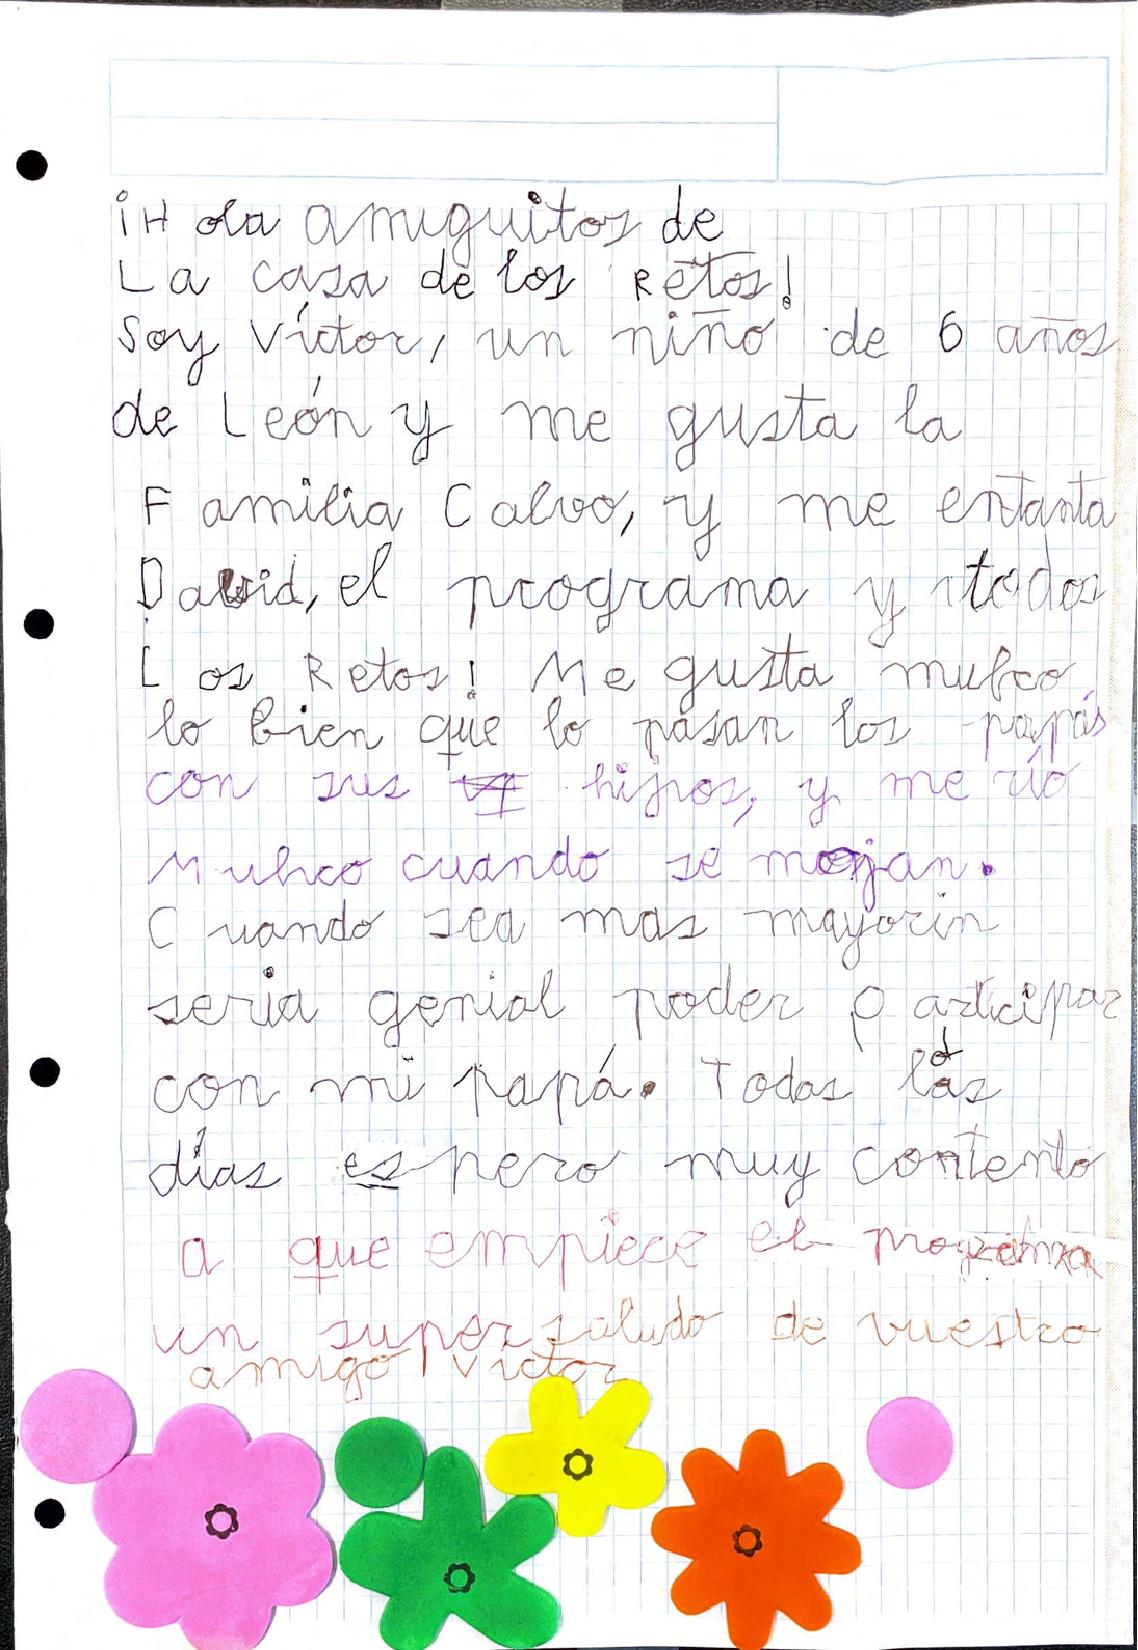 ¡Hola amiguitos de
La casa de los Retos!
Soy Víctor, un niño de 6 años
de León y me gusta la
Familia Calvo, y me entanta
David, el programa y todos
Los Retos! Me gusta muhco
lo bien que lo pasan los papás
con sus hijos, y me río
Muhco cuando se mojan.
Cuando sea mas mayorin
seria genial poder participar
con mi papá. Todos los
días espero muy contento
a que empiece el programa
un super saludo de vuestro
amigo Victor